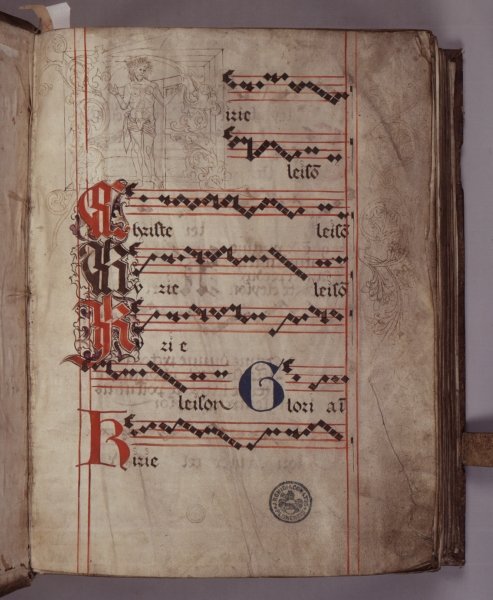 irie
leisō
Christe leisō
Kirie leisō
Kirie
leison Glori a ī
Kirie